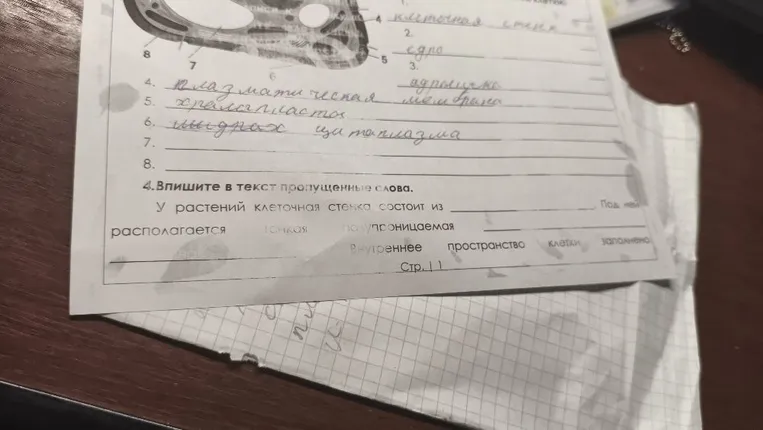 1.
клеточная стенк
2.
ядро
3.
ядрышко
4. плазматическая мембрана
5. хлоропласты
6. цитоплазма
7.
8.
4. Впишите в текст пропущенные слова.
У растений клеточная стенка состоит из Под ней
располагается тонкая полупроницаемая
Внутреннее пространство клетки заполнено
Стр. 11
4
5
6
7
8